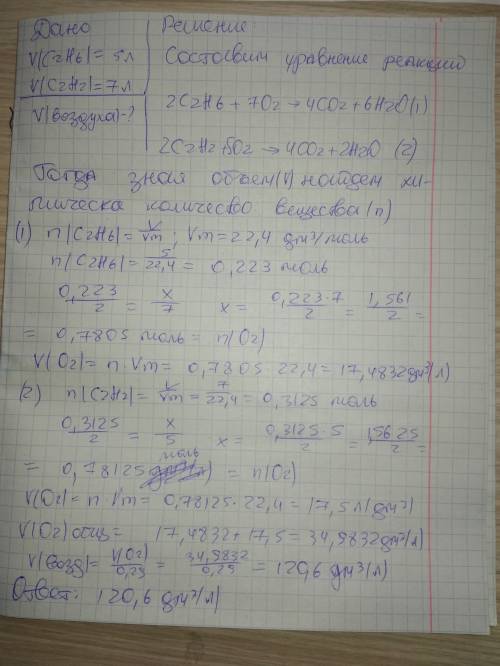 Дано Решение
V(C2H6)=5л Составим уравнение реакции
V(C2H2)=7л
V(воздуха)-? 2C2H6+7O2→4CO2+6H2O(1)
2C2H2+5O2→4CO2+2H2O (2)
Тогда зная объем(V) найдем хи-
мическа количество вещества(n)
(1) n(C2H6)=V/Vm; Vm=22,4 дм³/моль
n(C2H6)=5/22,4=0,223 моль
0,223/2=x/7 x=0,223·7/2=1,561/2=
=0,7805 моль=n(O2)
V(O2)=n·Vm=0,7805·22,4=17,4832дм³(л)
(2) n(C2H2)=V/Vm=7/22,4=0,3125 моль
0,3125/2=x/5 x=0,3125·5/2=1,5625/2=
=0,78125 моль =n(O2)
V(O2)=n·Vm=0,78125·22,4=17,5л(дм³)
V(O2)общ=17,4832+17,5=34,9832дм³(л)
V(возд)=V(O2)/0,29=34,9832/0,29=120,6 дм³(л)
Ответ: 120,6 дм³(л)